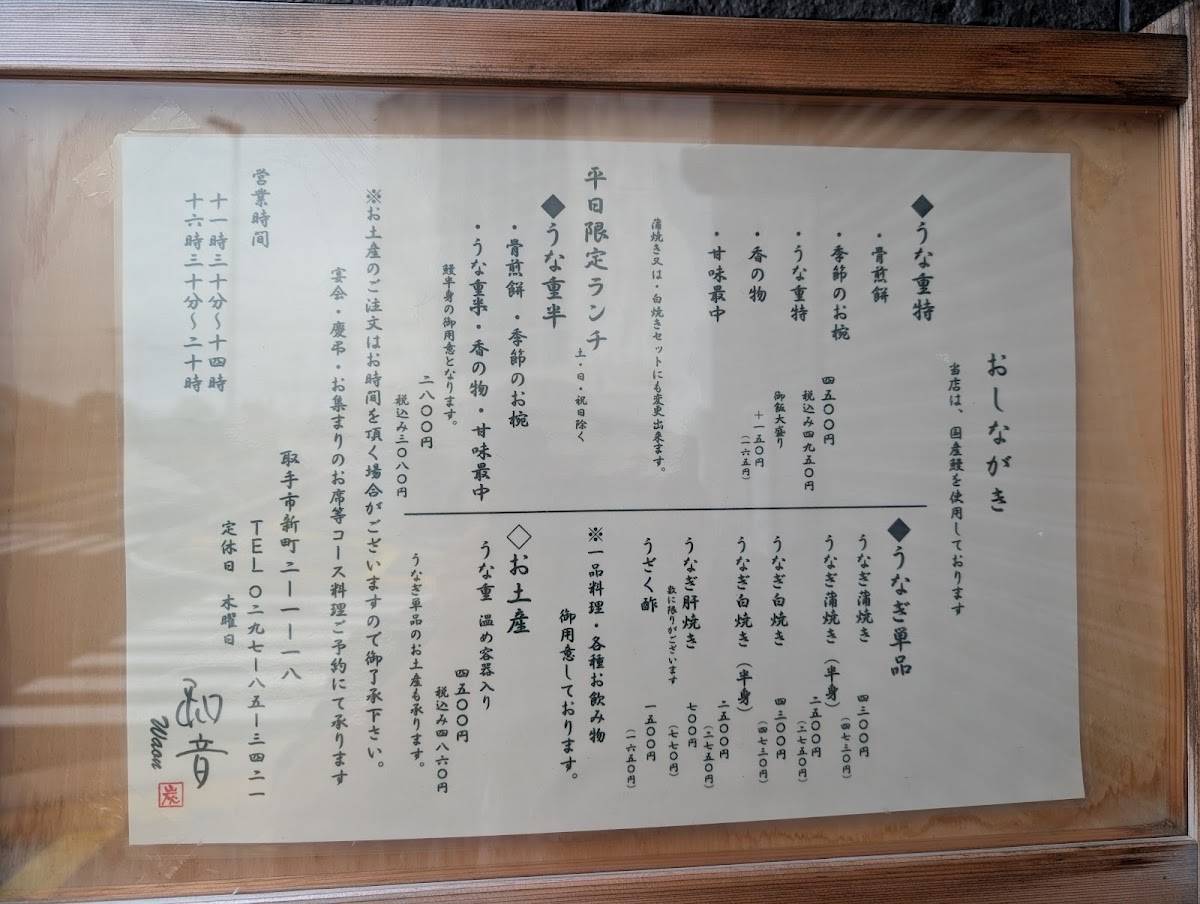 おしながき
当店は、国産鰻を使用しております
◆うな重特
・骨煎餅
・季節のお椀
・うな重特
・香の物
・甘味最中
四五〇〇円
税込み四九五〇円
御飯大盛り
+一五〇円
(一六五円)
蒲焼き又は・白焼きセットにも変更出来ます。
平日限定ランチ
土・日・祝日除く
◆うな重半
・骨煎餅・季節のお椀
・うな重半・香の物・甘味最中
鰻半身の御用意となります。
二八〇〇円
税込み三〇八〇円
◆うなぎ単品
うなぎ蒲焼き
四三〇〇円
(四七三〇円)
うなぎ蒲焼き(半身)
二五〇〇円
(二七五〇円)
うなぎ白焼き
四三〇〇円
(四七三〇円)
うなぎ白焼き(半身)
二五〇〇円
(二七五〇円)
うなぎ肝焼き
数に限りがございます
七〇〇円
(七七〇円)
うざく酢
一五〇〇円
(一六五〇円)
※一品料理・各種お飲み物
御用意しております。
◇お土産
うな重 温め容器入り
四五〇〇円
税込み四八六〇円
うなぎ単品のお土産も承ります。
※お土産のご注文はお時間を頂く場合がございますので御了承下さい。
宴会・慶弔・お集まりのお席等コース料理ご予約にて承ります
営業時間
十一時三十分〜十四時
十六時三十分〜二十時
取手市新町二ー一ー一八
TEL〇二九七ー八五ー三四二一
定休日 木曜日
和音
Waon
炭